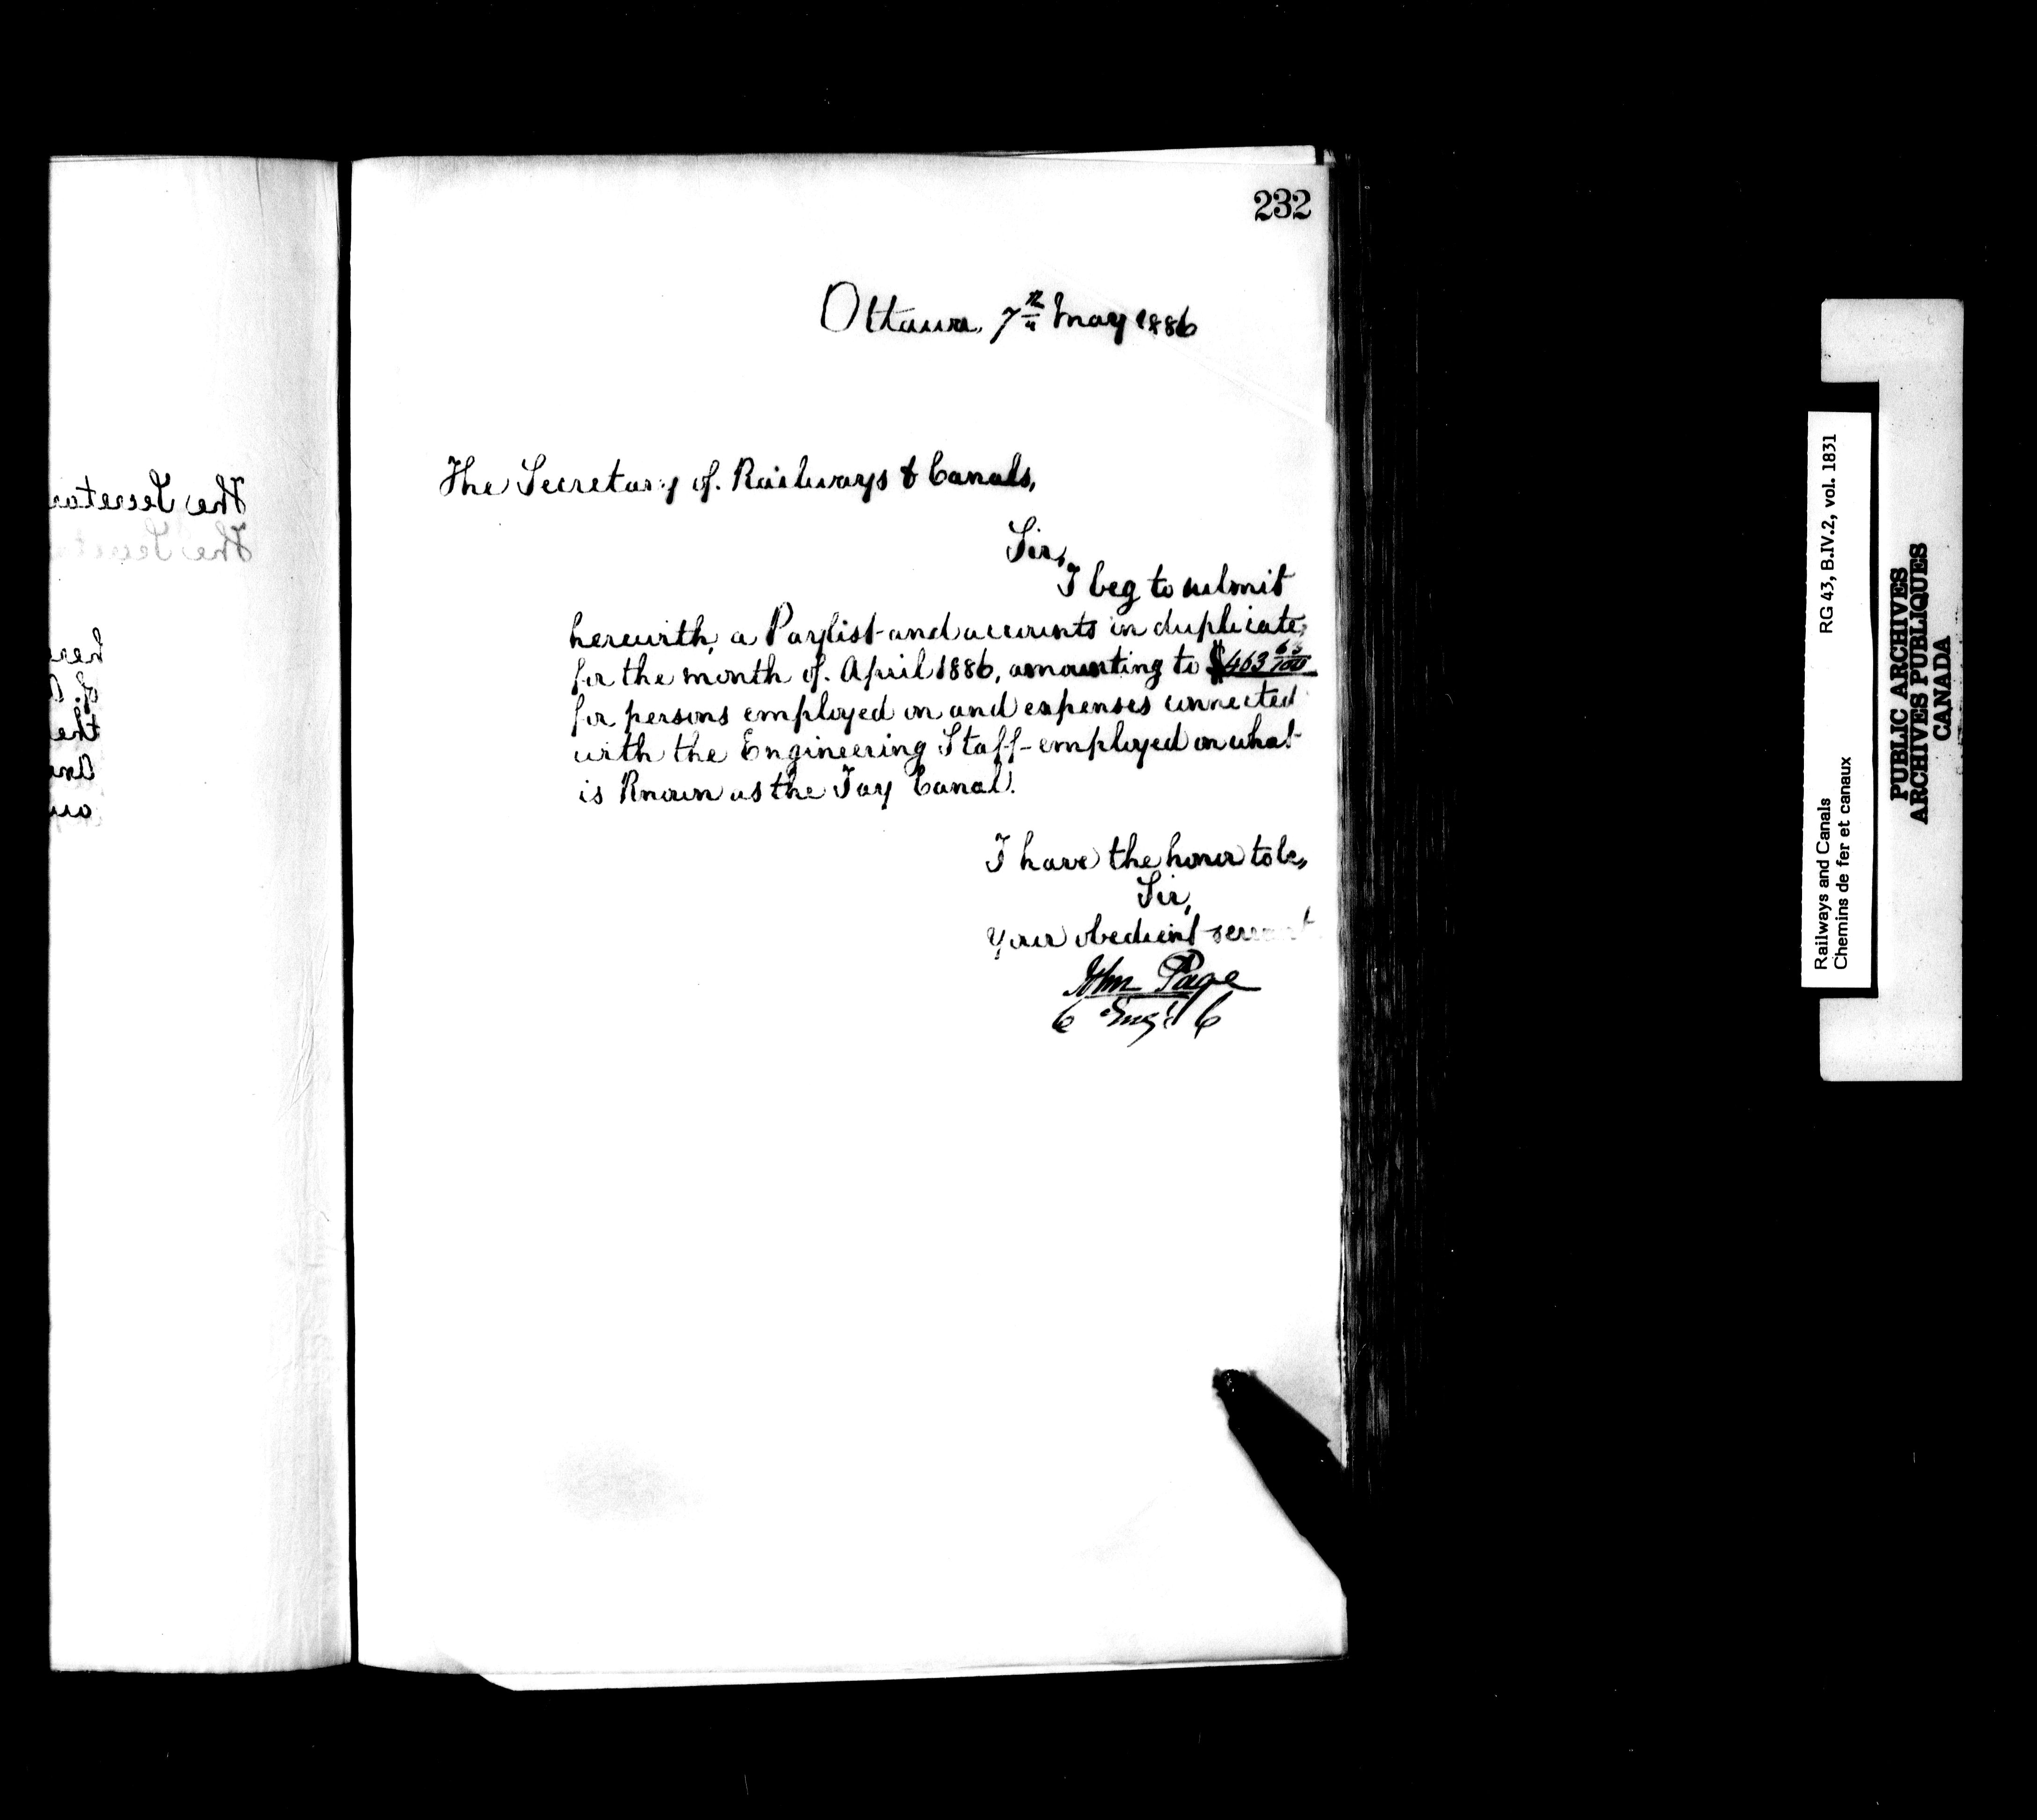 232
Ottawa, 7th May 1886
The Secretary of Railways & Canals,
Sir,
I beg to submit
herewith, a Paylist and accounts in duplicate,
for the month of April 1886, amounting to $463 65/100
for persons employed on and expenses connected
with the Engineering Staff employed on what
is Known as the Tay Canal.
I have the honor to be,
Sir,
Your obedient servant
John Page
C Eng'r C
The Secretar
The Secreta
here
the
RG 43, B.IV.2, vol. 1831
Railways and Canals
Chemins de fer et canaux
PUBLIC ARCHIVES
ARCHIVES PUBLIQUES
CANADA